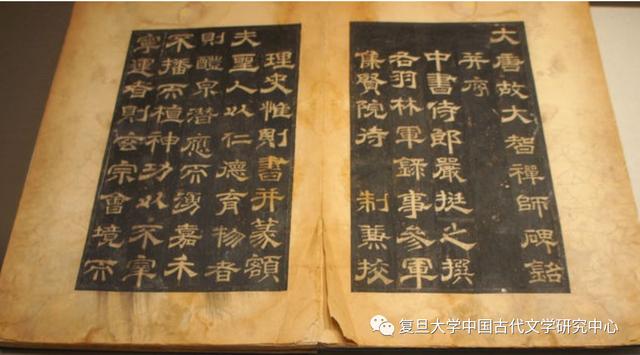 大唐故大智禪師碑銘
并序
中書侍郎嚴挺之撰
右羽林軍錄事參軍
集賢院待 制兼挍
理史惟則書并篆額
夫聖人以仁德育物者
則醴泉潛應而湧嘉禾
不播而植神功以不宰
宰運者則玄宗會境而
复旦大学中国古代文学研究中心